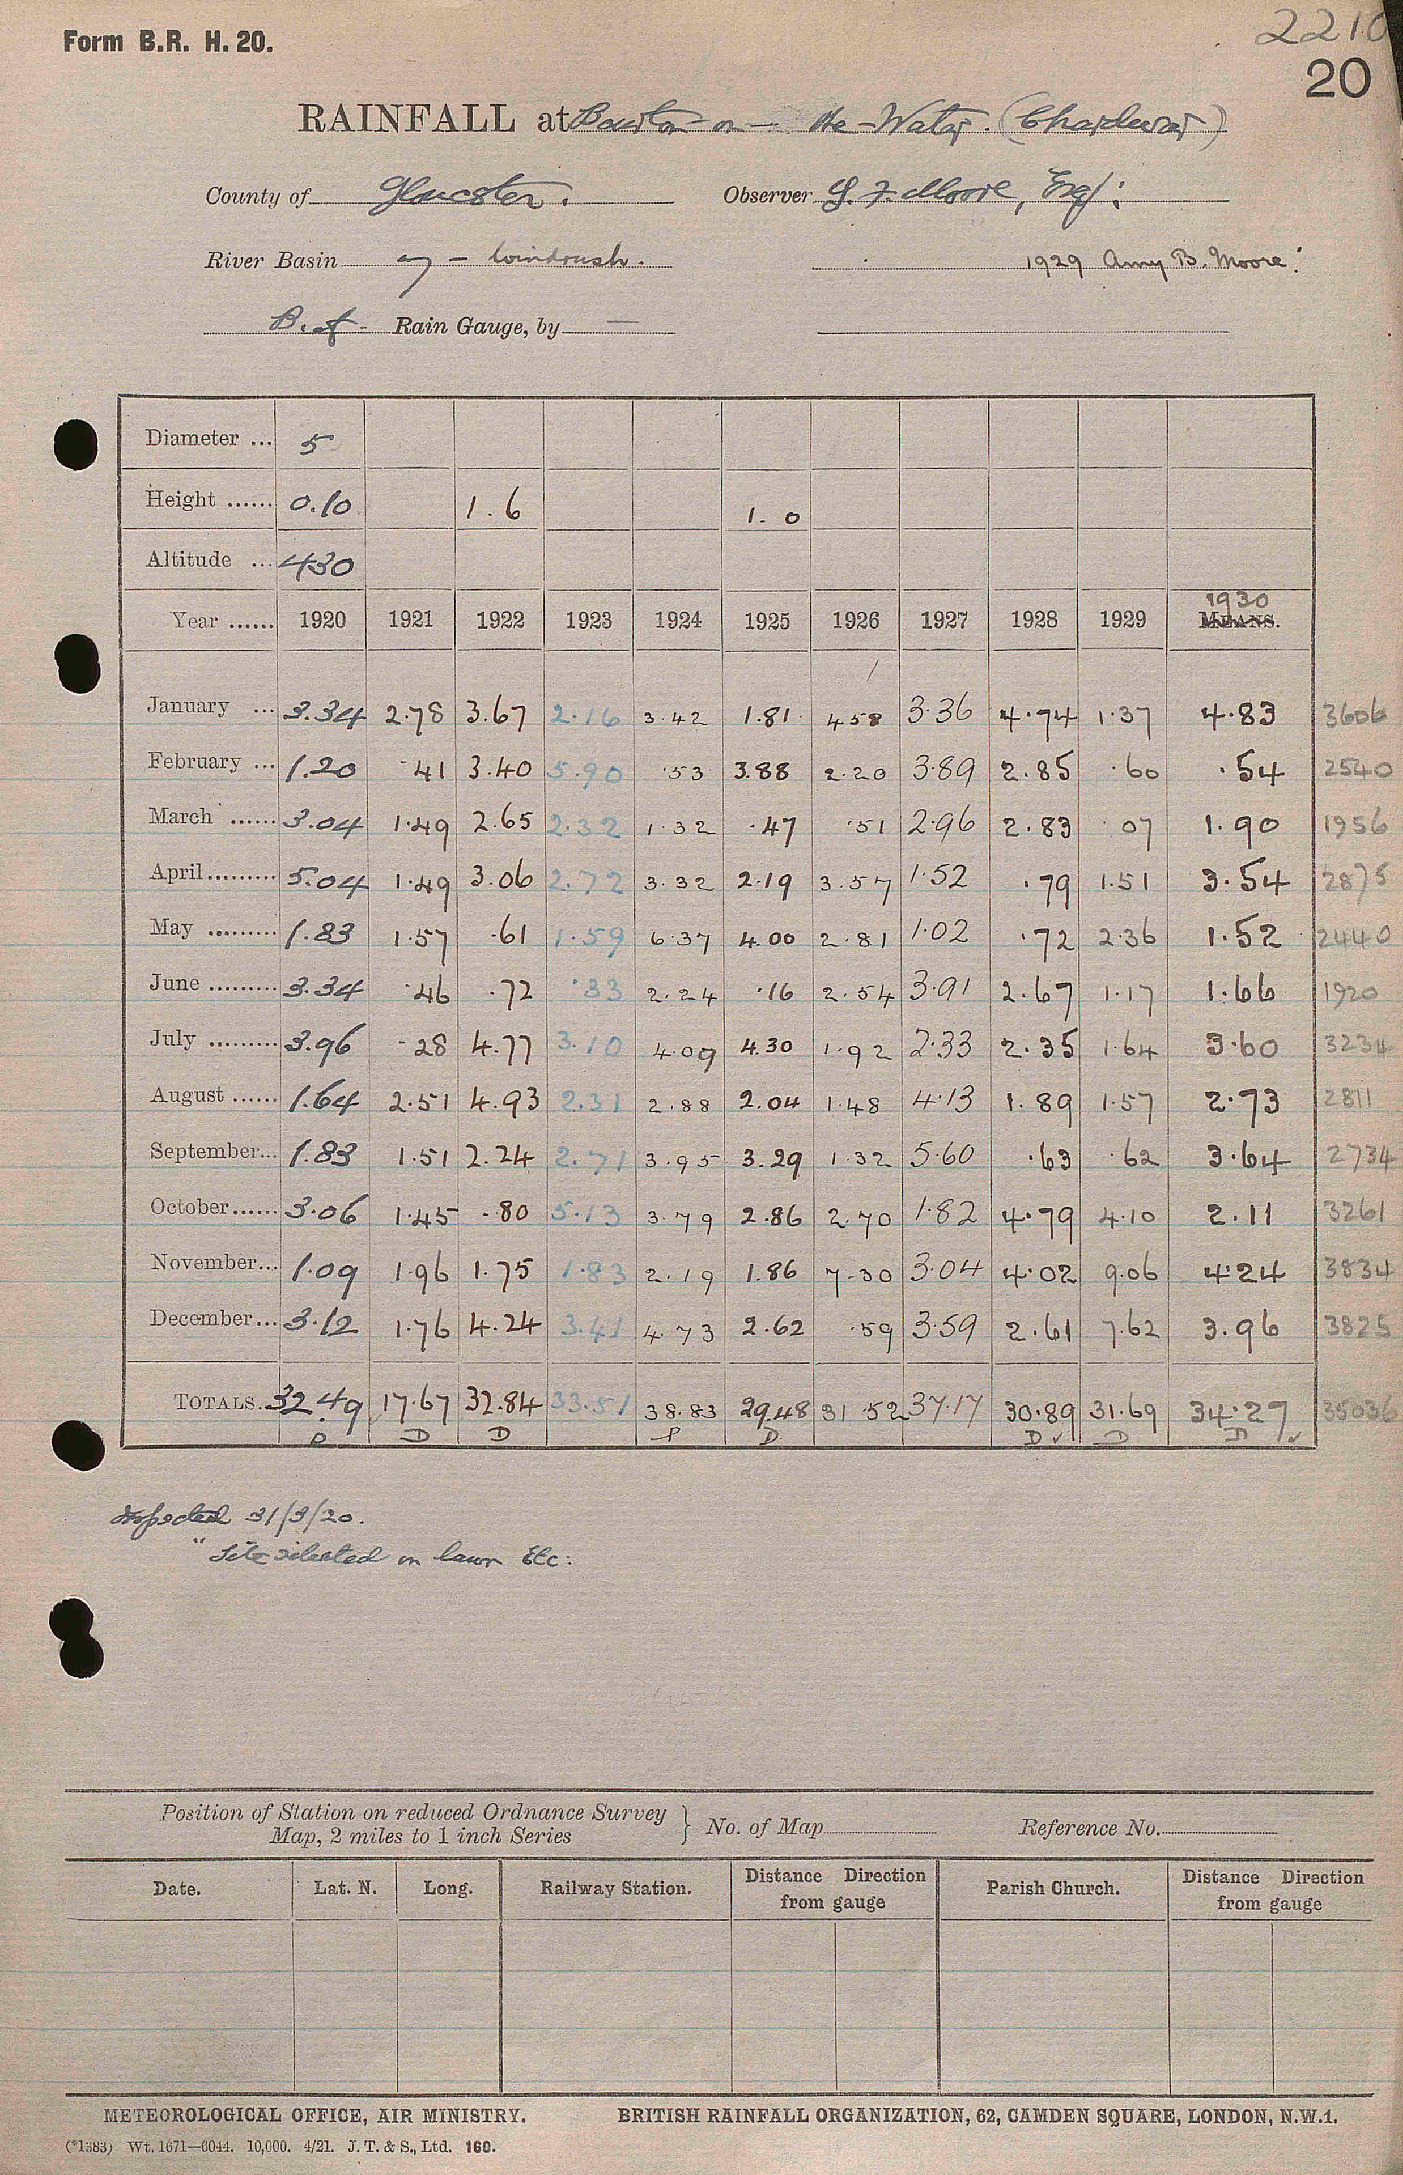 Form B.R. H. 20.
2210
20
RAINFALL at Bourton-on-the-Water. (Chardwar)
County of Gloucester. Observer G. F. Moore, Esq:
River Basin — Windrush. 1929 Amy B. Moore.
Rain Gauge, by —
Diameter ... 5
Height ...... 0.10 1.6 1.0
Altitude ... 430
Year ...... 1920 1921 1922 1923 1924 1925 1926 1927 1928 1929 1930 MEANS.
January ... 3.34 2.78 3.67 2.16 3.42 1.81 4.58 3.36 4.74 1.37 4.83 3606
February ... 1.20 .41 3.40 5.90 .53 3.88 2.20 3.89 2.85 .60 .54 2540
March ...... 3.04 1.49 2.65 2.32 1.32 .47 .51 2.96 2.83 .07 1.90 1956
April ......... 5.04 1.49 3.06 2.72 3.32 2.19 3.57 1.52 .79 1.51 3.54 2875
May ......... 1.83 1.57 .61 1.59 6.37 4.00 2.81 1.02 .72 2.36 1.52 2440
June ......... 3.34 .46 .72 .33 2.24 .16 2.54 3.91 2.67 1.17 1.66 1920
July ......... 3.96 .28 4.77 3.10 4.09 4.30 1.92 2.33 2.35 1.64 3.60 3234
August ...... 1.64 2.51 4.93 2.31 2.88 2.04 1.48 4.13 1.89 1.57 2.73 2811
September... 1.83 1.51 2.24 2.71 3.95 3.29 1.32 5.60 .63 .62 3.64 2734
October ...... 3.06 1.45 .80 5.13 3.79 2.86 2.70 1.82 4.79 4.10 2.11 3261
November... 1.09 1.96 1.75 1.83 2.19 1.86 7.30 3.04 4.02 9.06 4.24 3834
December... 3.12 1.76 4.24 3.41 4.73 2.62 .59 3.59 2.61 7.62 3.96 3825
TOTALS. 32.49 17.67 32.84 33.51 38.83 29.48 31.52 37.17 30.89 31.69 34.27 35036
D D D P D D ✓ D D ✓
Inspected 31/3/20.
" Site selected on lawn Etc:
Position of Station on reduced Ordnance Survey } No. of Map Reference No.
Map, 2 miles to 1 inch Series
Date. Lat. N. Long. Railway Station. Distance Direction from gauge Parish Church. Distance Direction from gauge
METEOROLOGICAL OFFICE, AIR MINISTRY. BRITISH RAINFALL ORGANIZATION, 62, CAMDEN SQUARE, LONDON, N.W.1.
(*1383) Wt. 1671—6044. 10,000. 4/21. J. T. & S., Ltd. 160.